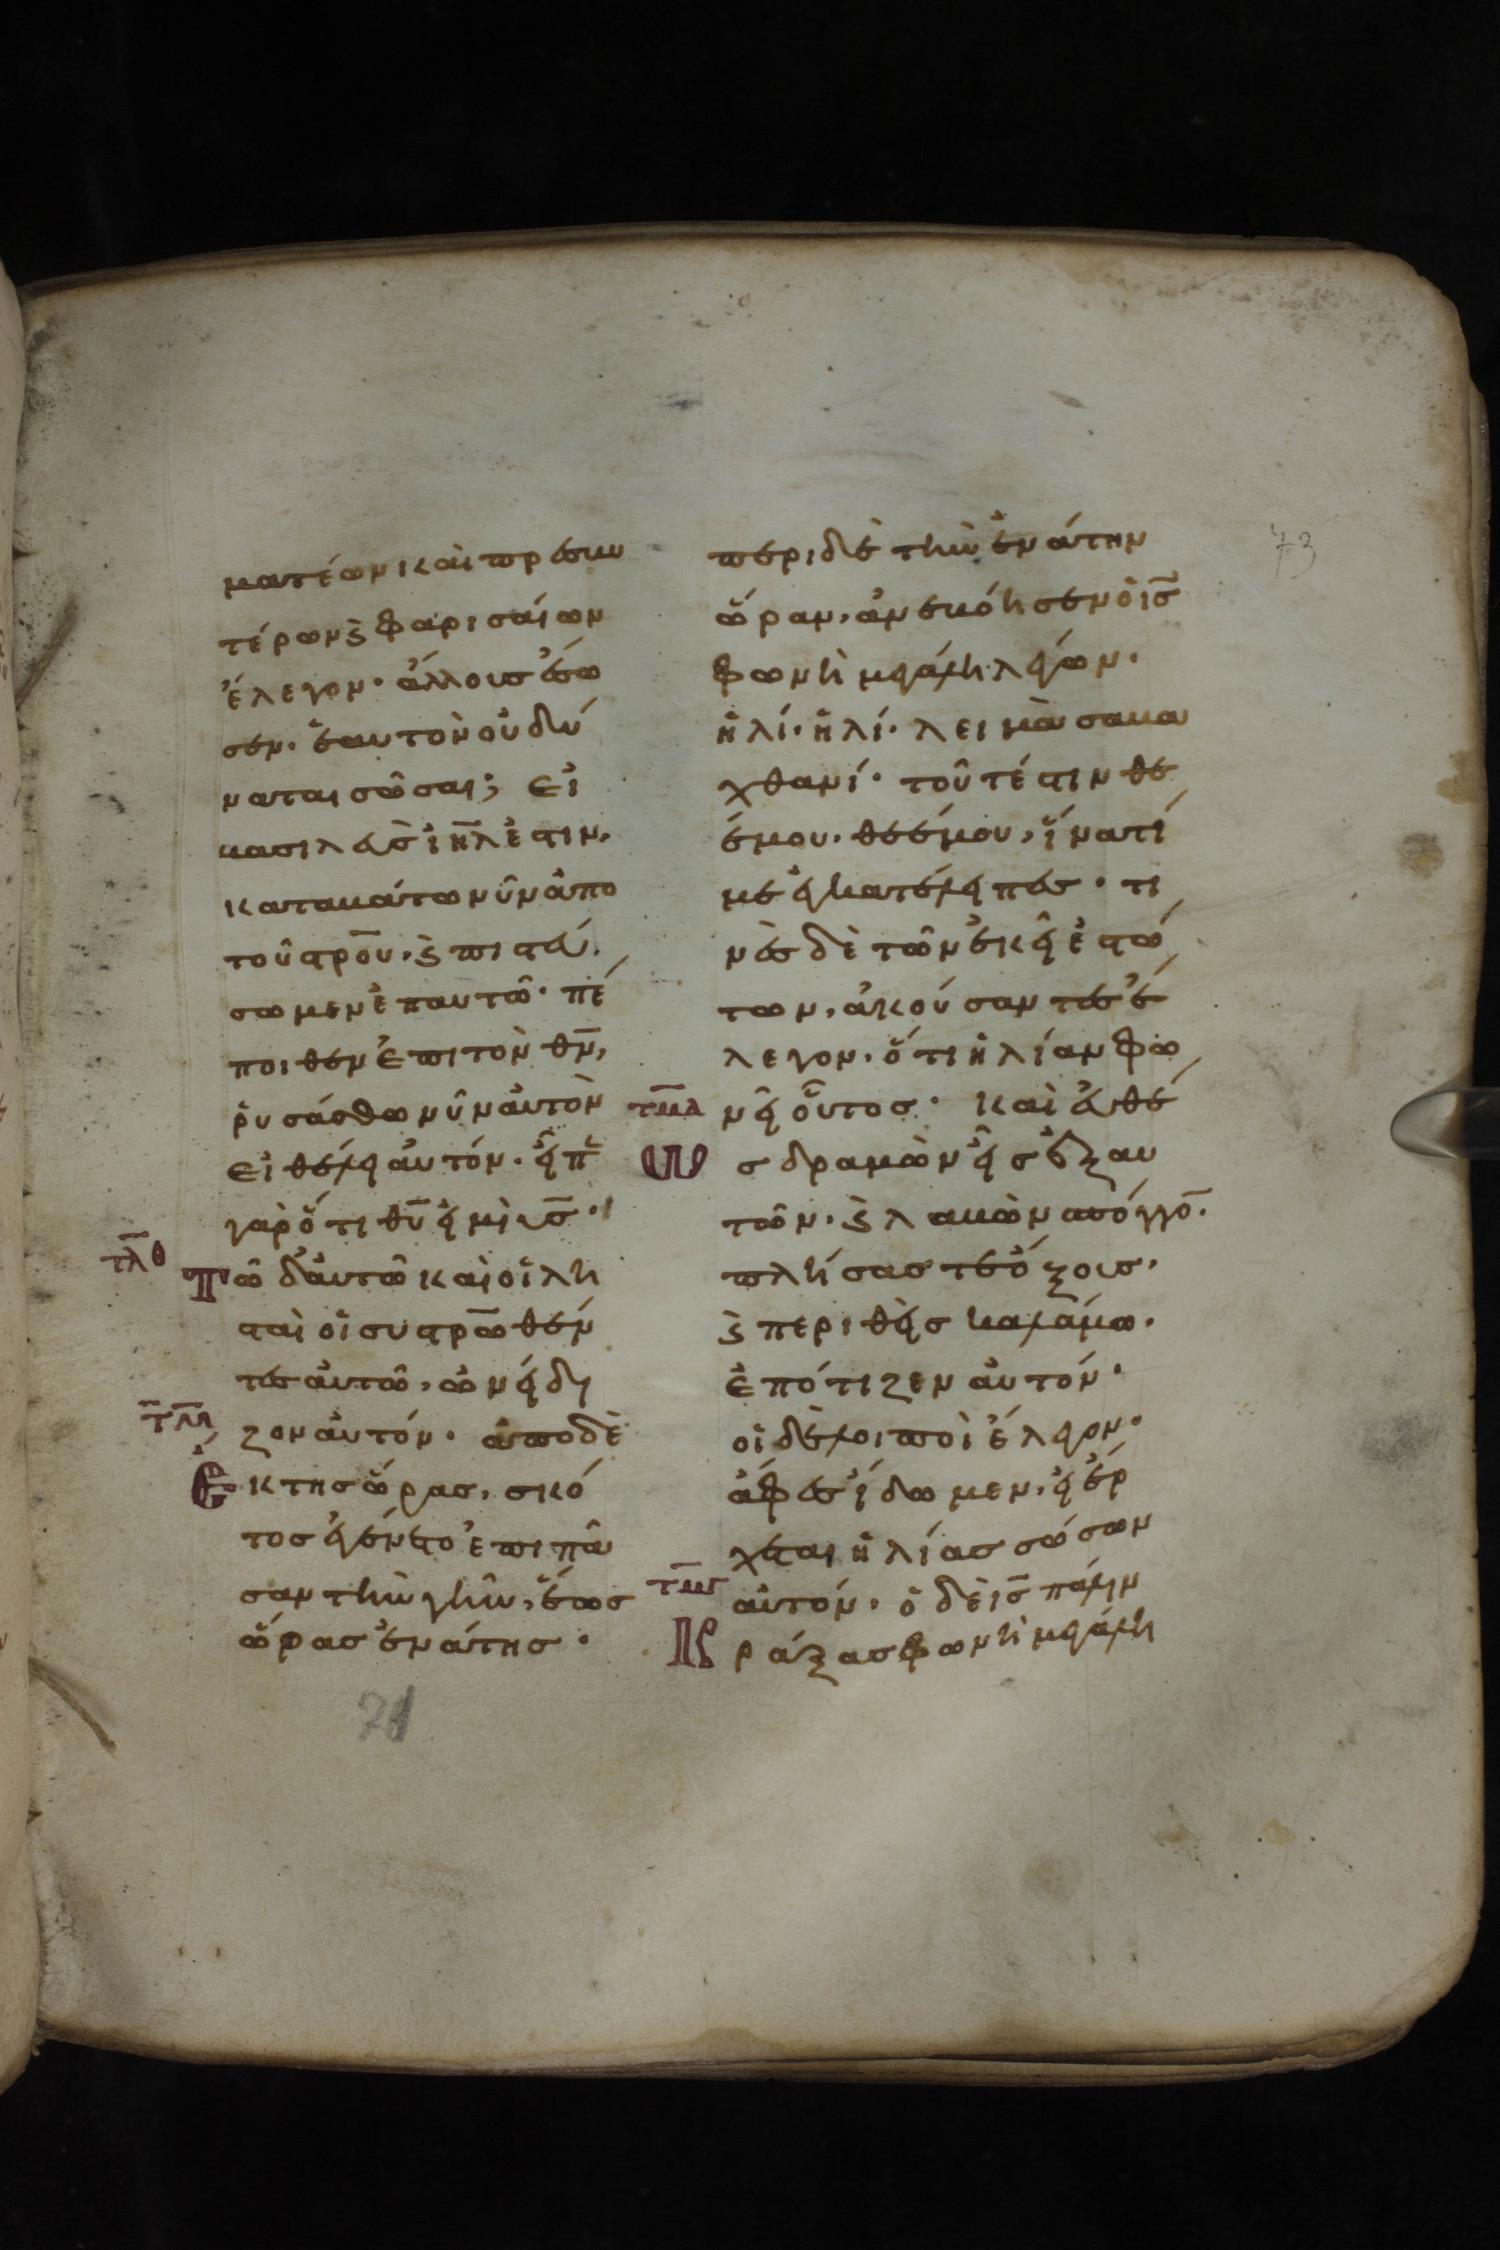 ματέων καὶ πρεσβυ
τέρων ϗ φαρισαίων
ἔλεγον· ἄλλους ἔσω
σεν· ἑαυτὸν οὐ δύ
ναται σῶσαι; εἰ
βασιλεὺς ἰη̅λ ἐστιν,
καταβάτω νῦν ἀπο
τοῦ στρο̅υ, ϗ πιστεύ
σωμεν ἐπαυτῶ· πέ
ποιθεν ἐπι τὸν θ̅ν̅,
ῥυσάσθω νῦν αὐτὸν
εἰ θέλει αὐτόν· εἶπε
γὰρ ὅτι θ̅υ̅ εἰμὶ υ̅σ̅·
τ̅λ̅θ
Τῶ δ'αὐτῶ καὶ οἱ λη
σταὶ οἱ συστρω̅θέν
τες αὐτῶ, ὠνείδι
τ̅μ̅
ζον αὐτόν· ἀπο δὲ
ἕκτης ὥρας, σκό
τος ἐγένετο ἐπι πᾶ
σαν τὴν γῆν, ἕως
ὥρας ἐνάτης·
περι δὲ τὴν ἐνάτην
ὥραν, ἀνεβόησεν ὁ ι̅σ̅
φωνὴ μεγάλη λέγων·
ἠλί· ἠλί· λειμὰ σαβα
χθανί· τοῦτέστιν θε
έμου· θεέμου, ἵνατί
με ἐγκατέλειπες· τι
νὲς δὲ τῶν ἐκεῖ ἑστώ
των, ἀκούσαντες ἔ
λεγον· ὅτι ἠλίαν φω
τ̅μ̅α
νεῖ οὗτος· καὶ εὐθέ
ως δραμὼν εἷς ἐξ αυ
τῶν· ϗ λαβὼν σπόγγο̅·
πλήσας τε ὄξους·
ϗ περιθεὶς καλάμω·
ἐπότιζεν αὐτόν·
οἱ δὲ λοιποὶ ἔλεγον·
ἄφες ἴδωμεν, εἰ ἔρ
χεται ἠλίας σώσων
τ̅μ̅β
αὐτόν· ὁ δὲ ι̅σ̅ πάλιν
Κράξας φωνὴ μεγάλη
73
71